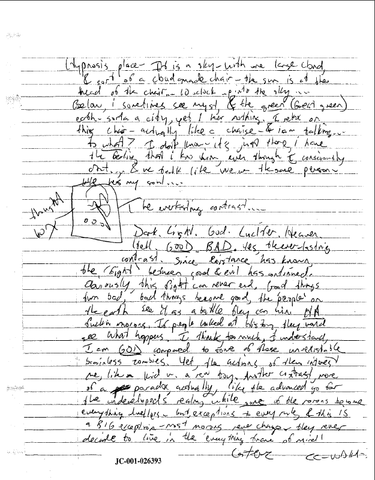 Hypnosis place - It is a sky - with one large cloud
& sort of a cloud made chair - the sun is at the
head of the chair - 10 o'clock - into the sky...
Below, i sometimes see myst & the green (Great green)
earth - sorta a city, yet I hear nothing. I relax on
this chair - actually like a chaise - & i am talking...
to what? I don't know - it's just there, i have
the feeling that i know him, even though I consciously
don't... & we talk like we are the same person -
like he's my soul....
The everlasting contrast....
Dark. Light. God. Lucifer. Heaven.
Hell. GOOD. BAD. Yes, the everlasting
contrast. Since existance has known,
the 'fight' between good & evil has continued.
Obviously, this fight can never end. Good things
turn bad, bad things become good, the 'people' on
the earth see it as a battle they can win. HA
fuckin morons. If people looked at history, they would
see what happens. I think too much, I understand,
I am GOD compared to some of those
brainless zombies. Yet, the actions of them interest
me, like a kid with a new toy. Another contrast, more
of a paradox actually, like the advanced go for
the undeveloped realm, while some of the morons become
everything dwellers - but, exceptions to every rule & this is
a BIG exception - most morons never change, they never
decide to live in the 'everything' frame of mind!
JC-001-026393